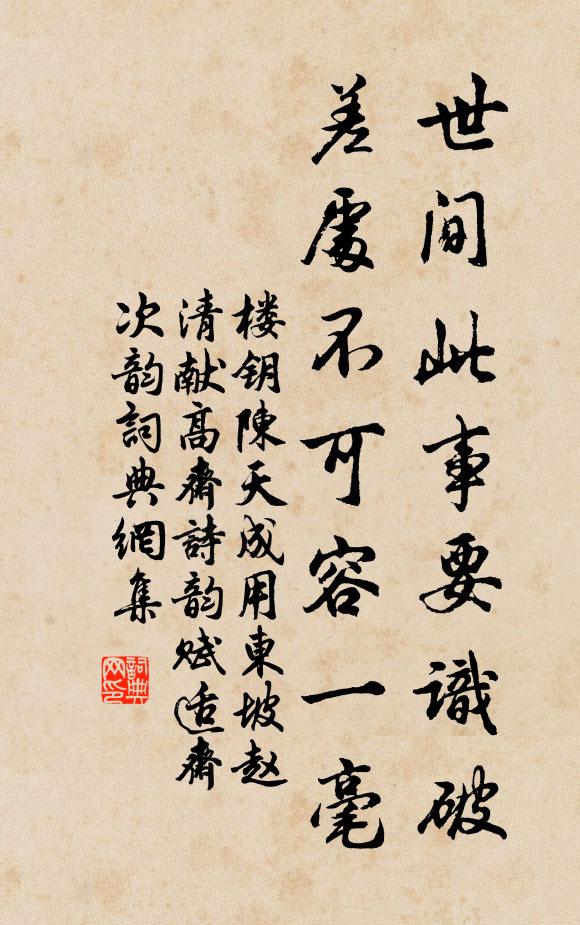 世間此事要識破
差處不可容一毫
楼钥陳天成用東坡赵
清献高齋詩韵赋适齋
次韵詞典網集
詞典网印